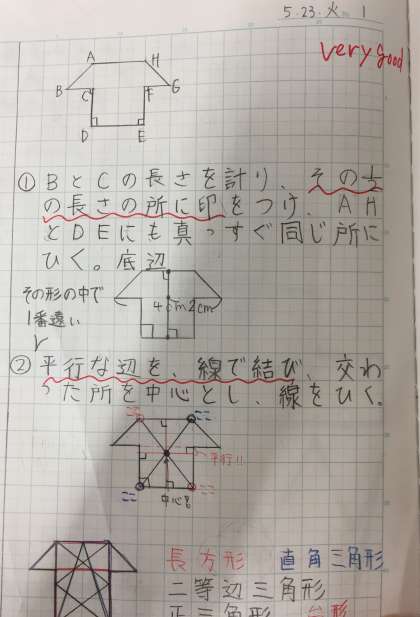 5.23.火 1
very good
A H
B C F G
D E
①BとCの長さを計り、その1/2
の長さの所に印をつけ、AH
とDEにも真っすぐ同じ所に
ひく。底辺
その形の中で
1番遠い
4cm2cm
②平行な辺を、線で結び、交わ
った所を中心とし、線をひく。
ここ ここ
平行!!
ここ 中心 ここ
長方形 直角三角形
二等辺三角形
正三角形 台形